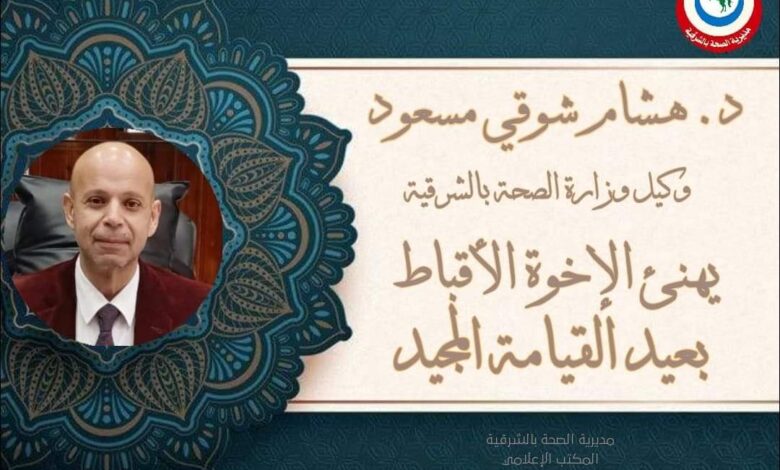 مديرية الصحة بالشرقية
د. هشام شوقي مسعود
وكيل وزارة الصحة بالشرقية
يهنئ الإخوة الأقباط
بعيد القيامة المجيد
مديرية الصحة بالشرقية
المكتب الإعلامي